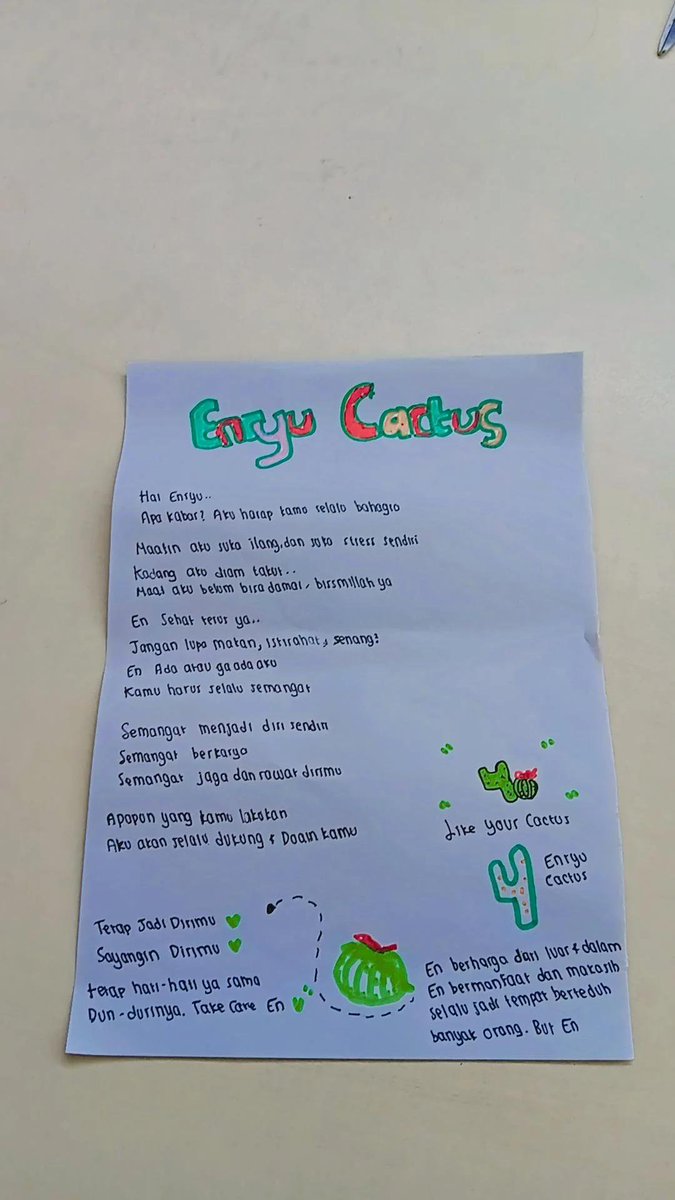 Enryu Cactus
Hai Enryu..
Apa kabar? Aku harap kamo selalo bahagia
Maafin aku suka ilang, dan suka stress sendiri
Kadang ako diam takut..
Maaf aku belom bisa damai, birsmillah ya
En Sehat teros ya..
Jangan lupa makan, istirahat, senang?
En Ada atau ga ada aku
Kamu harus selalu semangat
Semangat menjadi diri sendiri
Semangat berkarya
Semangat jaga dan rawat dirimu
Apapon yang kamu lakokan
Aku akan selalu dukung & Doain kamu
Like your Cactus
Enryu
Cactus
Tetap Jadi Dirimu
Sayangin Dirimu
tetap hati-hati ya sama
Duri-durinya. Take Care En
En berharga dari luar & dalam
En bermanfaat dan makasih
selalu jadi tempat berteduh
banyak orang. But En